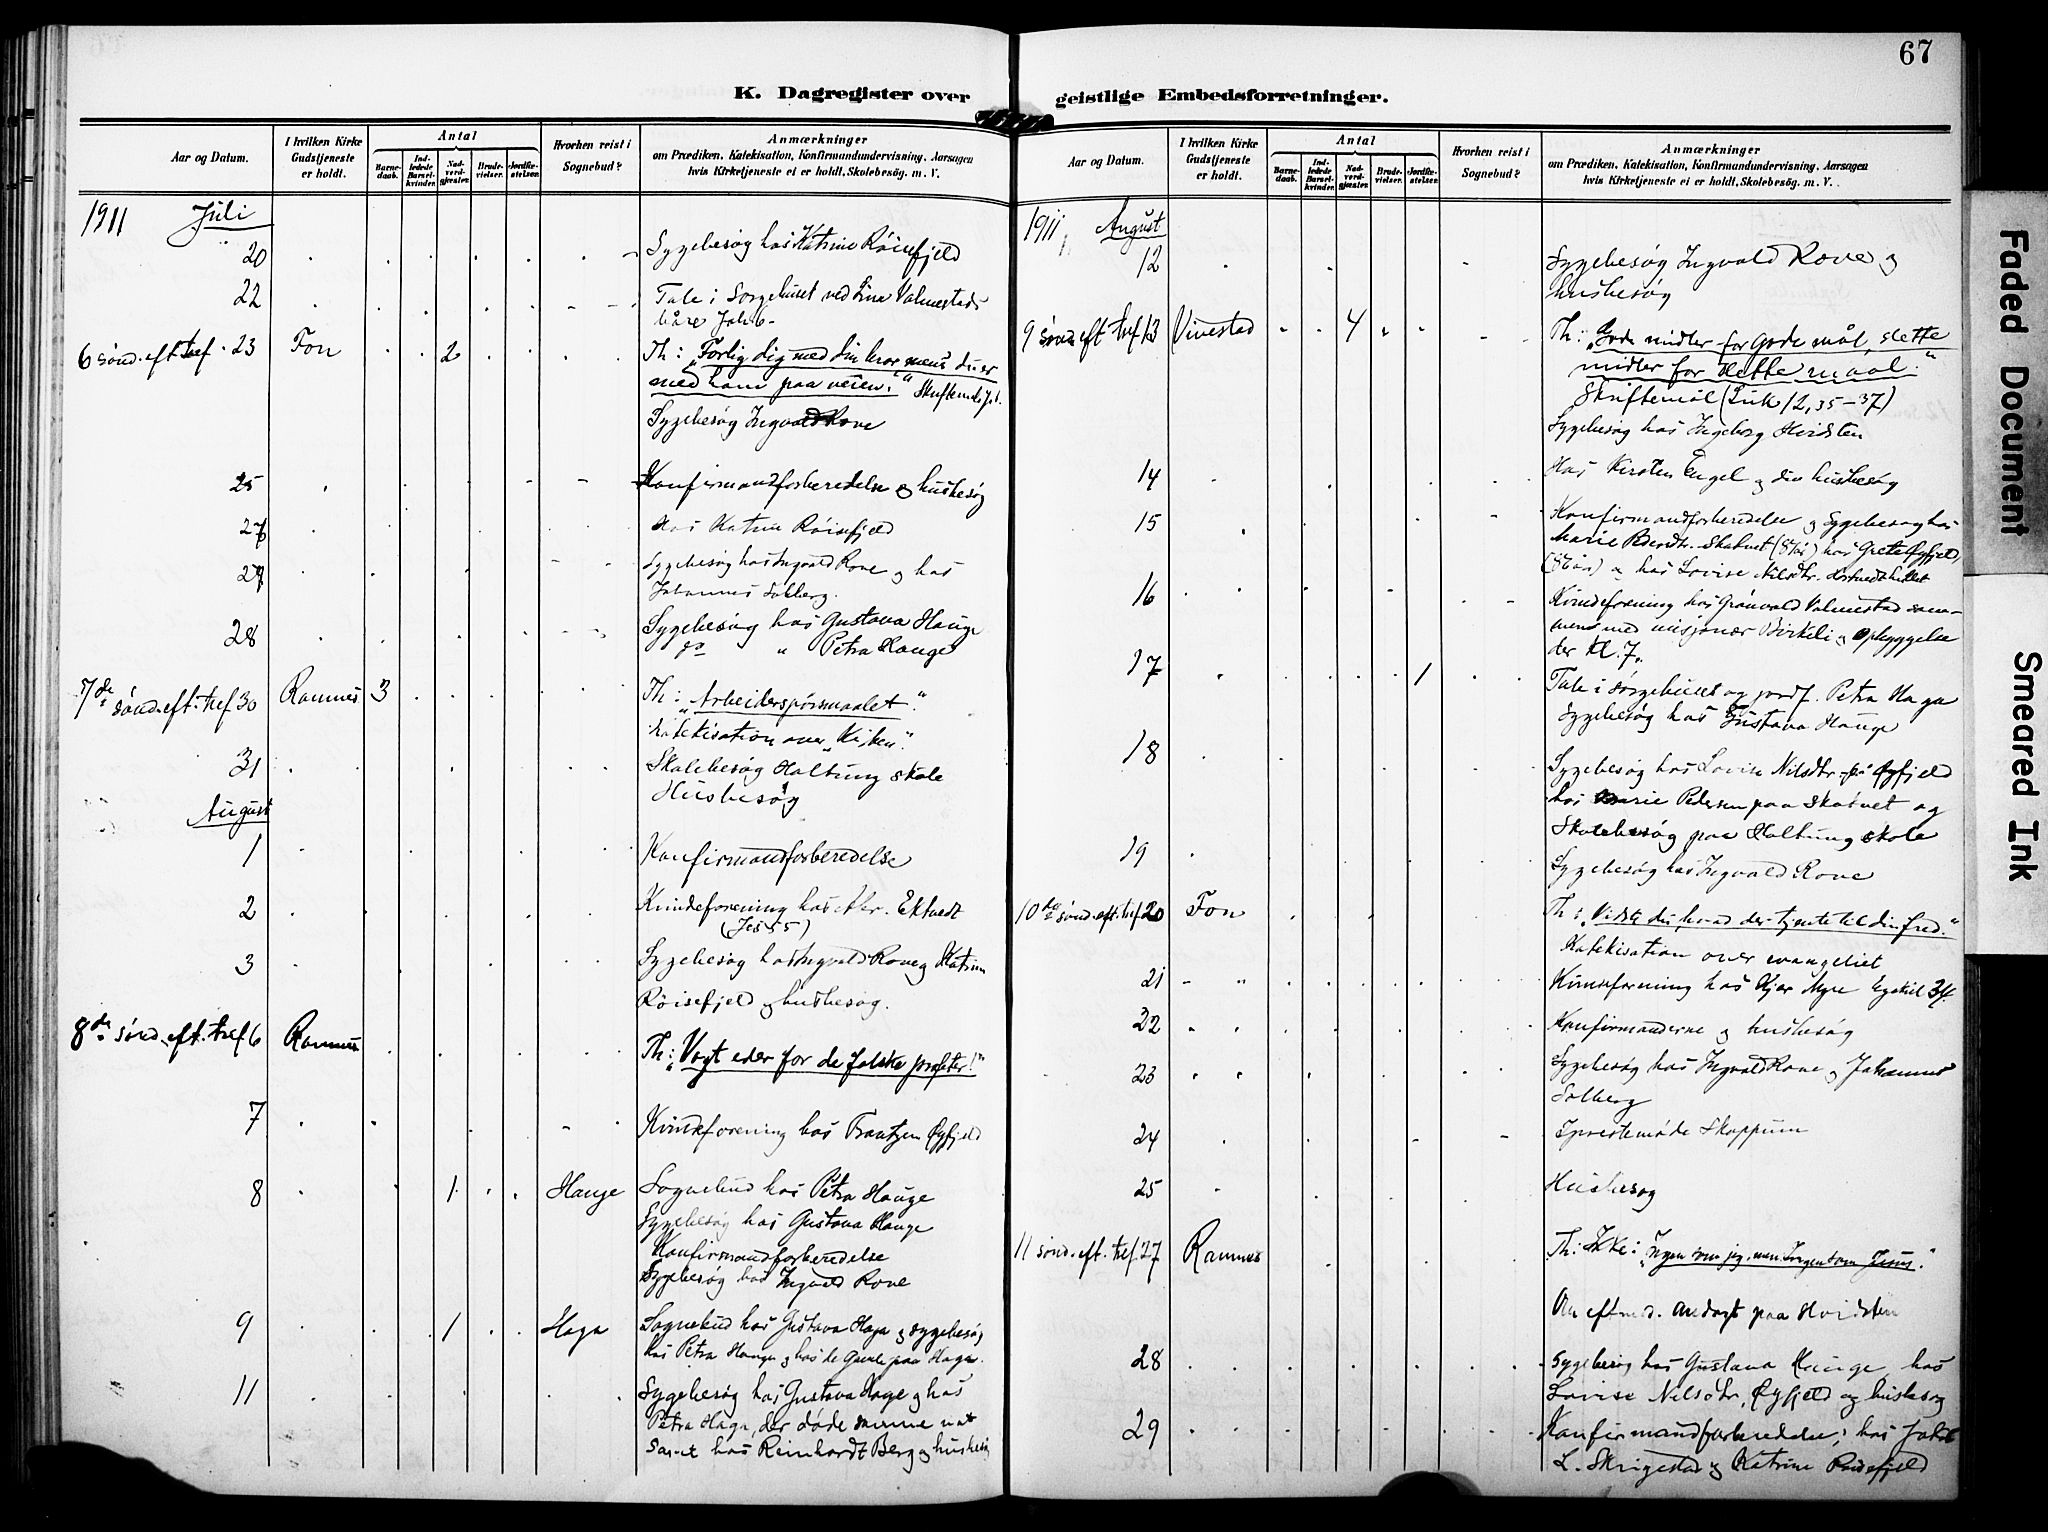 67
K. Dagregister over geistlige Embedsforretninger.
Aar og Datum.
I hvilken Kirke Gudstjeneste er holdt.
Antal
Barnedaab.
Indledede Barselkvinder.
Nadverdgjæster.
Brudevielser.
Jordfæstelser.
Hvorhen reist i Sognebud?
Anmærkninger
om Prædiken, Katekisation, Konfirmandundervisning, Aarsagen
hvis Kirketjeneste ei er holdt, Skolebesøg. m. V.
1911 Juli
20 Sygebesøg hos Katrine Röisefjeld
22 Tale i Sorgehuset ved Lina Valmestads
båre Joh 6
6 sønd. eft. tref. 23 Fon 2 Th: "Forlig dig med din bror mens du er
med ham paa veien." Skriftemål
Sygebesøg Ingvald Rove
25 Konfirmandforberedelse og husbesøg
26 Hos Katrine Röisefjeld
27 Sygebesøg hos Ingvald Rove og hos
Johannes Solberg.
28 Sygebesøg hos Gustava Hauge
do " Petra Hauge
7de sønd. eft. tref 30 Ramnes 3 Th: "Arbeiderspörsmaalet".
Katekisation over "Kirken".
31 Skolebesøg Holtung skole
Husbesøg
August
1 Konfirmandforberedelse
2 Kvindeforening hos Abr. Ektvedt
(Jes 55)
3 Sygebesøg hos Ingvald Rove og Katrine
Röisefjeld og husbesøg.
8de sønd. eft. tref 6 Ramnes Th: "Vogt eder for de falske profeter!"
7 Kvindeforening hos Frantzen Øyfjeld
8 1 Hauge Sognebud hos Petra Hauge
Sygebesøg hos Gustava Hauge
Konfirmandforberedelse
Sygebesøg hos Ingvald Rove
9 1 Haga Sognebud hos Gustava Haga og sygebesøg
hos Petra Hauge og hos de gamle paa Haga.
11 Sygebesøg hos Gustava Hage og hos
Petra Haga, der döde samme nat
samt hos Reinhardt Berg og husbesøg
Aar og Datum.
I hvilken Kirke Gudstjeneste er holdt.
Antal
Barnedaab.
Indledede Barselkvinder.
Nadverdgjæster.
Brudevielser.
Jordfæstelser.
Hvorhen reist i Sognebud?
Anmærkninger
om Prædiken, Katekisation, Konfirmandundervisning, Aarsagen
hvis Kirketjeneste ei er holdt, Skolebesøg. m. V.
1911 August
12 Sygebesøg Ingvald Rove og
husbesøg
9 sønd eft tref 13 Vivestad 4 Th: "Gode midler for gode mål, slette
midler for slette maal."
Skriftemål (Luk 12, 35-37)
Sygebesøg hos Ingeborg Hvidsten
14 Hos Kirsten Engel og div husbesøg
15 Konfirmandforberedelse og Sygebesøg hos
Marie Skatvet (87år) hos Grete Øyfjeld,
(86år) og hos Lovise Nilsdtr.
16 Kvindeforening hos Grönvold Valmestad sam-
men med misjonær Birkeli og opbyggelse
der kl. 7.
17 1 Tale i sørgehuset og jordf. Petra Haga
Sygebesøg hos Gustava Hauge
18 Sygebesøg hos Lovise Nilsdtr. på Øyfjeld
hos Marie Pedersen paa Skatvet og
Skolebesøg paa Holtung skole
19 Sygebesøg hos Ingvald Rove
10de sønd. eft. tref. 20 Fon Th: "Vidste du, hvad der tjente til din fred."
Katekisation over evangeliet
21 Kvindeforening hos Kjær Myre Ezekiel 34
22 Konfirmanderne og husbesøg
23 Sygebesøg hos Ingvald Rove og Johannes
Solberg
24 I prestemöde Skoppum
25 Husbesøg
11 sønd. eft. tref. 27 Ramnes Th: Ikke: "Ingen som jeg, men Ingen som Jesus".
Om eftmd. andagt paa Hvidsten
28 Sygebesøg hos Gustava Hauge, hos
Lovise Nilsdtr, Øyfjeld og husbesøg
29 Konfirmandforberedelse; hos Jakob
L. Skrigestad og Katrine Röisefjeld
Faded Document
Smeared Ink